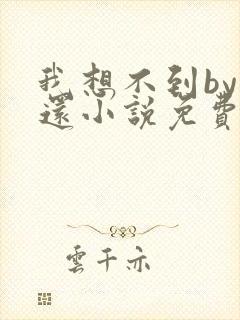 我想不到by
還小說免費
雲千亦